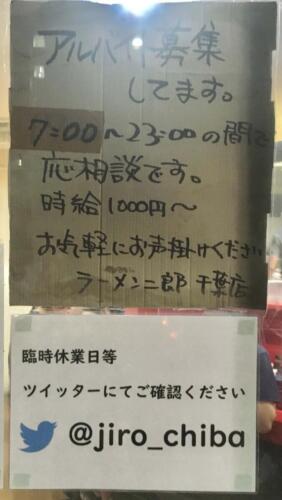 アルバイト募集
してます。
7:00～23:00の間で
応相談です。
時給1000円～
お気軽にお声掛けください
ラーメン二郎 千葉店
臨時休業日等
ツイッターにてご確認ください
@jiro_chiba